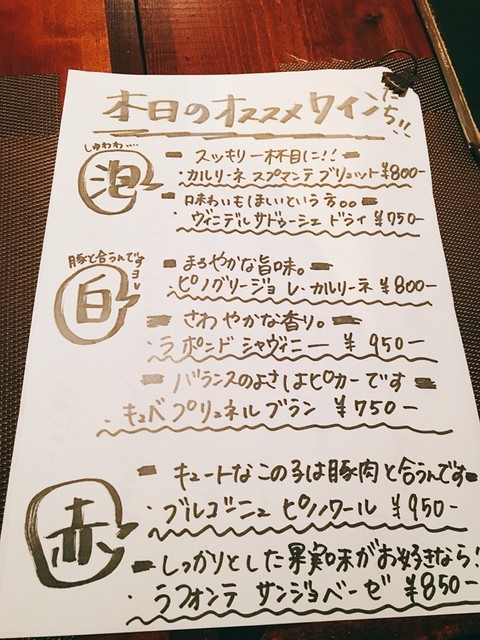 本日のオススメワインたち!!
しゅわわ…
泡
スッキリ一杯目に!!
・カルリーネ スプマンテ ブリュット ¥800-
味わいもほしいという方。。
・ヴィンデルサドゥーシェ ドライ ¥750-
豚と合うんですヨレ
白
まろやかな旨味。
・ピノグリージョ レ・カルリーネ ¥800-
さわやかな香り。
・ラ ポンド シャヴィニー ¥950-
バランスのよさはピカ一です
・キュベ プリュネル ブラン ¥750-
赤
キュートなこの子は豚肉と合うんです
・ブルゴーニュ ピノノワール ¥950-
しっかりとした果実味がお好きなら!
・ラフォンテ サンジョベーゼ ¥850-